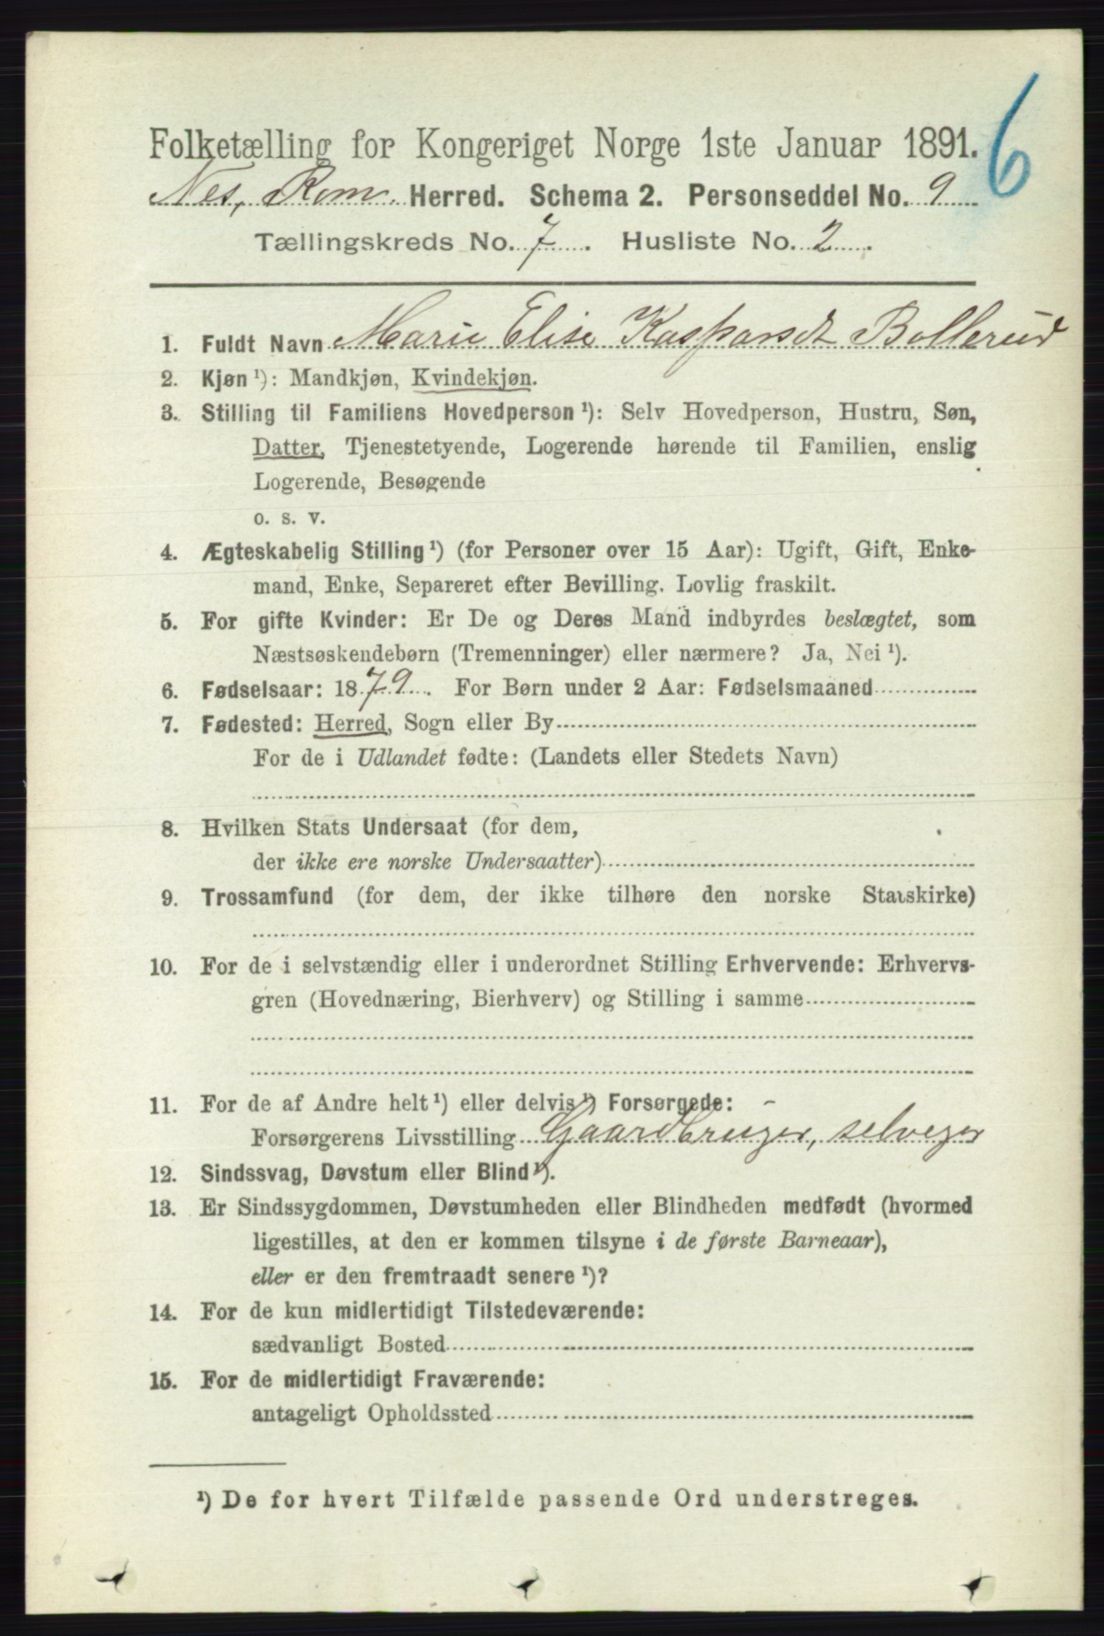 6
Folketælling for Kongeriget Norge 1ste Januar 1891.
Nes, Rom. Herred. Schema 2. Personseddel No. 9
Tællingskreds No. 7. Husliste No. 2.
1. Fuldt Navn Marie Elise Kasparsdt Bollerud
2. Kjøn ¹): Mandkjøn, Kvindekjøn.
3. Stilling til Familiens Hovedperson ¹): Selv Hovedperson, Hustru, Søn,
Datter, Tjenestetyende, Logerende hørende til Familien, enslig
Logerende, Besøgende
o. s. v.
4. Ægteskabelig Stilling ¹) (for Personer over 15 Aar): Ugift, Gift, Enke-
mand, Enke, Separeret efter Bevilling. Lovlig fraskilt.
5. For gifte Kvinder: Er De og Deres Mand indbyrdes beslægtet, som
Næstsøskendebørn (Tremenninger) eller nærmere? Ja, Nei ¹).
6. Fødselsaar: 1879. For Børn under 2 Aar: Fødselsmaaned
7. Fødested: Herred, Sogn eller By
For de i Udlandet fødte: (Landets eller Stedets Navn)
8. Hvilken Stats Undersaat (for dem,
der ikke ere norske Undersaatter)
9. Trossamfund (for dem, der ikke tilhøre den norske Statskirke)
10. For de i selvstændig eller i underordnet Stilling Erhvervende: Erhvervs-
gren (Hovednæring, Bierhverv) og Stilling i samme
11. For de af Andre helt ¹) eller delvis ¹) Forsørgede:
Forsørgerens Livsstilling Gaardbruger, selveger
12. Sindssvag, Døvstum eller Blind ¹).
13. Er Sindssygdommen, Døvstumheden eller Blindheden medfødt (hvormed
ligestilles, at den er kommen tilsyne i de første Barneaar),
eller er den fremtraadt senere ¹)?
14. For de kun midlertidigt Tilstedeværende:
sædvanligt Bosted
15. For de midlertidigt Fraværende:
antageligt Opholdssted
¹) De for hvert Tilfælde passende Ord understreges.